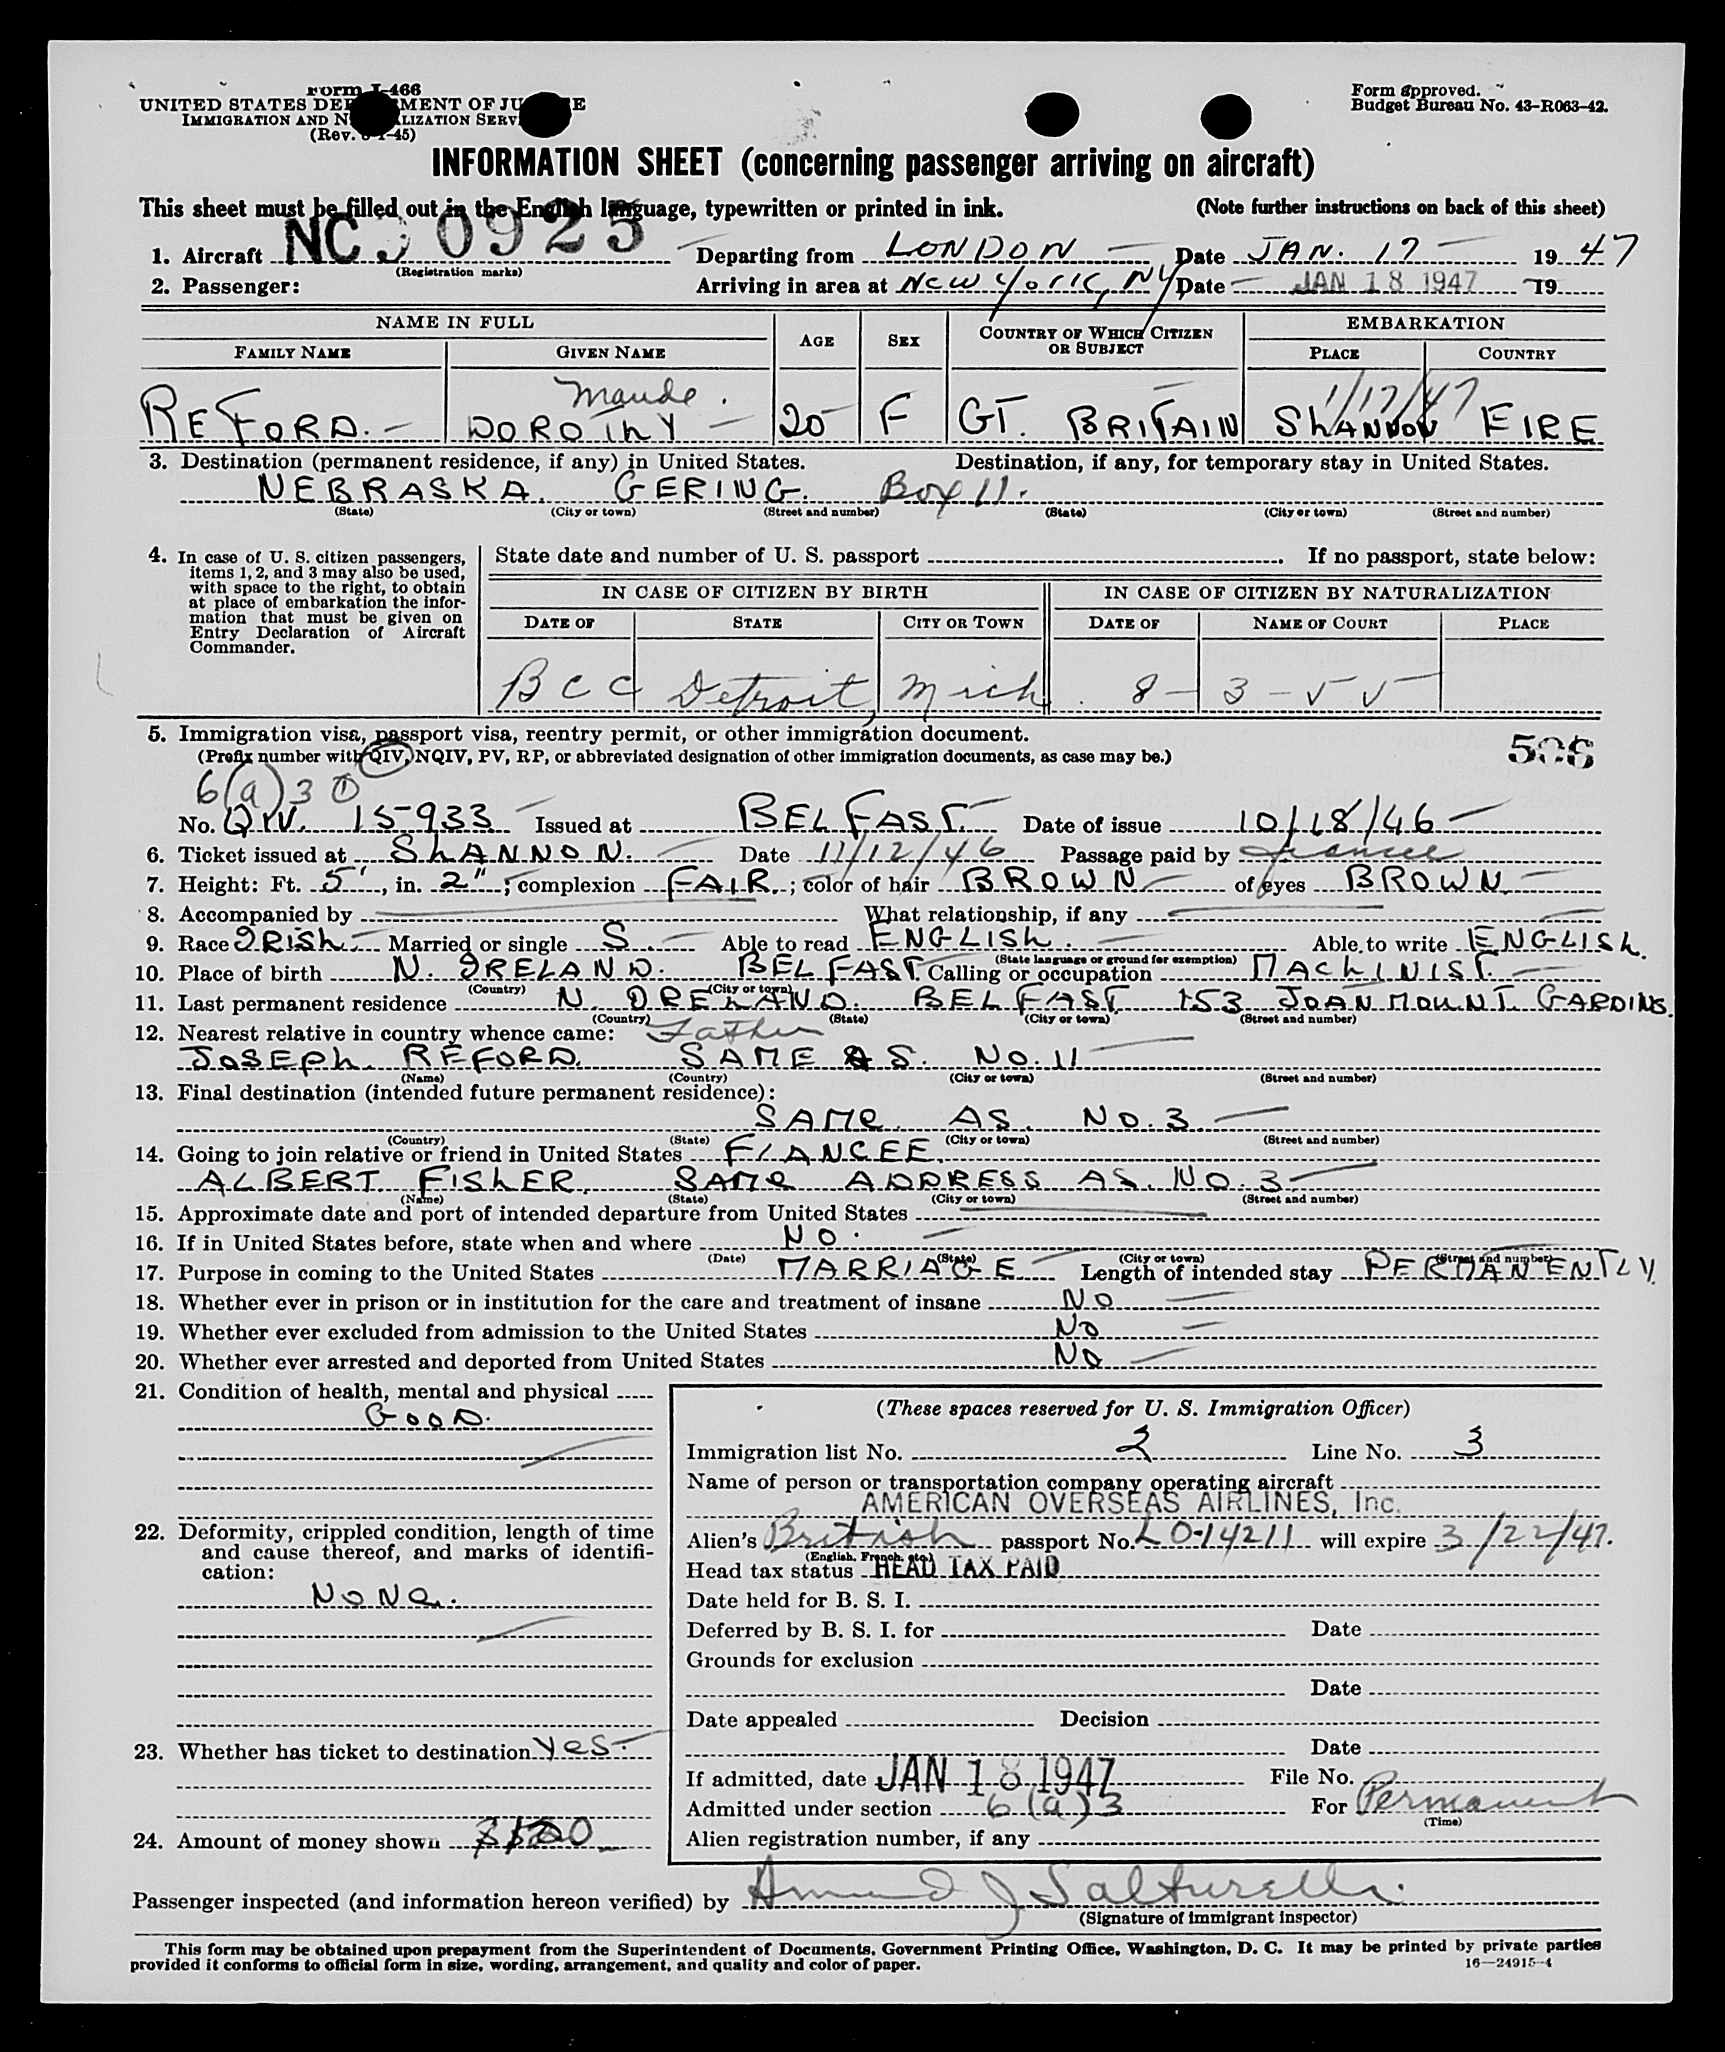 Form I-466
UNITED STATES DEPARTMENT OF JUSTICE
IMMIGRATION AND NATURALIZATION SERVICE
(Rev. -1-45)
Form approved.
Budget Bureau No. 43-R063-42.
INFORMATION SHEET (concerning passenger arriving on aircraft)
This sheet must be filled out in the English language, typewritten or printed in ink. (Note further instructions on back of this sheet)
1. Aircraft NC 90925 Departing from LONDON Date JAN. 17 1947
(Registration marks)
2. Passenger: Arriving in area at New York, NY Date JAN 18 1947 19
NAME IN FULL AGE SEX COUNTRY OF WHICH CITIZEN OR SUBJECT EMBARKATION
FAMILY NAME GIVEN NAME PLACE COUNTRY
Maude. 1/17/47
REFORD. DOROTHY 20 F GT. BRITAIN SHANNON EIRE
3. Destination (permanent residence, if any) in United States. Destination, if any, for temporary stay in United States.
NEBRASKA. GERING. Box 11.
(State) (City or town) (Street and number) (State) (City or town) (Street and number)
4. In case of U. S. citizen passengers, items 1, 2, and 3 may also be used, with space to the right, to obtain at place of embarkation the information that must be given on Entry Declaration of Aircraft Commander.
State date and number of U. S. passport . If no passport, state below:
IN CASE OF CITIZEN BY BIRTH IN CASE OF CITIZEN BY NATURALIZATION
DATE OF STATE CITY OR TOWN DATE OF NAME OF COURT PLACE
BCC Detroit, Mich. 8-3-55
5. Immigration visa, passport visa, reentry permit, or other immigration document.
(Prefix number with QIV, NQIV, PV, RP, or abbreviated designation of other immigration documents, as case may be.)
6(a)3
No. QIV. 15-933 Issued at BELFAST. Date of issue 10/18/46
6. Ticket issued at SHANNON. Date 11/12/46 Passage paid by fiancee
7. Height: Ft. 5', in. 2"; complexion FAIR.; color of hair BROWN of eyes BROWN.
8. Accompanied by What relationship, if any
9. Race IRISH. Married or single S. Able to read ENGLISH. Able to write ENGLISH.
(State language or ground for exemption)
10. Place of birth N. IRELAND. BELFAST. Calling or occupation MACHINIST.
(Country) (City or town)
11. Last permanent residence N. IRELAND. BELFAST 153 JOANMOUNT GARDINS.
(Country) (State) (City or town) (Street and number)
12. Nearest relative in country whence came: Father
JOSEPH. REFORD. SAME AS. NO. 11
(Name) (Country) (City or town) (Street and number)
13. Final destination (intended future permanent residence):
SAME. AS. NO. 3.
(Country) (State) (City or town) (Street and number)
14. Going to join relative or friend in United States FIANCEE.
ALBERT FISHER. SAME ADDRESS AS. NO. 3
(Name) (State) (City or town) (Street and number)
15. Approximate date and port of intended departure from United States
16. If in United States before, state when and where NO.
(Date) (State) (City or town) (Street and number)
17. Purpose in coming to the United States MARRIAGE Length of intended stay PERMANENTLY.
18. Whether ever in prison or in institution for the care and treatment of insane NO
19. Whether ever excluded from admission to the United States NO
20. Whether ever arrested and deported from United States NO
21. Condition of health, mental and physical
GOOD.
22. Deformity, crippled condition, length of time and cause thereof, and marks of identification:
NONE.
23. Whether has ticket to destination Yes
24. Amount of money shown
(These spaces reserved for U. S. Immigration Officer)
Immigration list No. 2 Line No. 3
Name of person or transportation company operating aircraft
AMERICAN OVERSEAS AIRLINES, Inc.
Alien's British passport No. LO-14211 will expire 3/22/47.
(English, French, etc.)
Head tax status HEAD TAX PAID
Date held for B. S. I.
Deferred by B. S. I. for Date
Grounds for exclusion
Date
Date appealed Decision
Date
If admitted, date JAN 18 1947 File No.
Admitted under section 6(a)3 For Permanent
(Time)
Alien registration number, if any
Passenger inspected (and information hereon verified) by
(Signature of immigrant inspector)
This form may be obtained upon prepayment from the Superintendent of Documents, Government Printing Office, Washington, D. C. It may be printed by private parties
provided it conforms to official form in size, wording, arrangement, and quality and color of paper. 16—24915-4